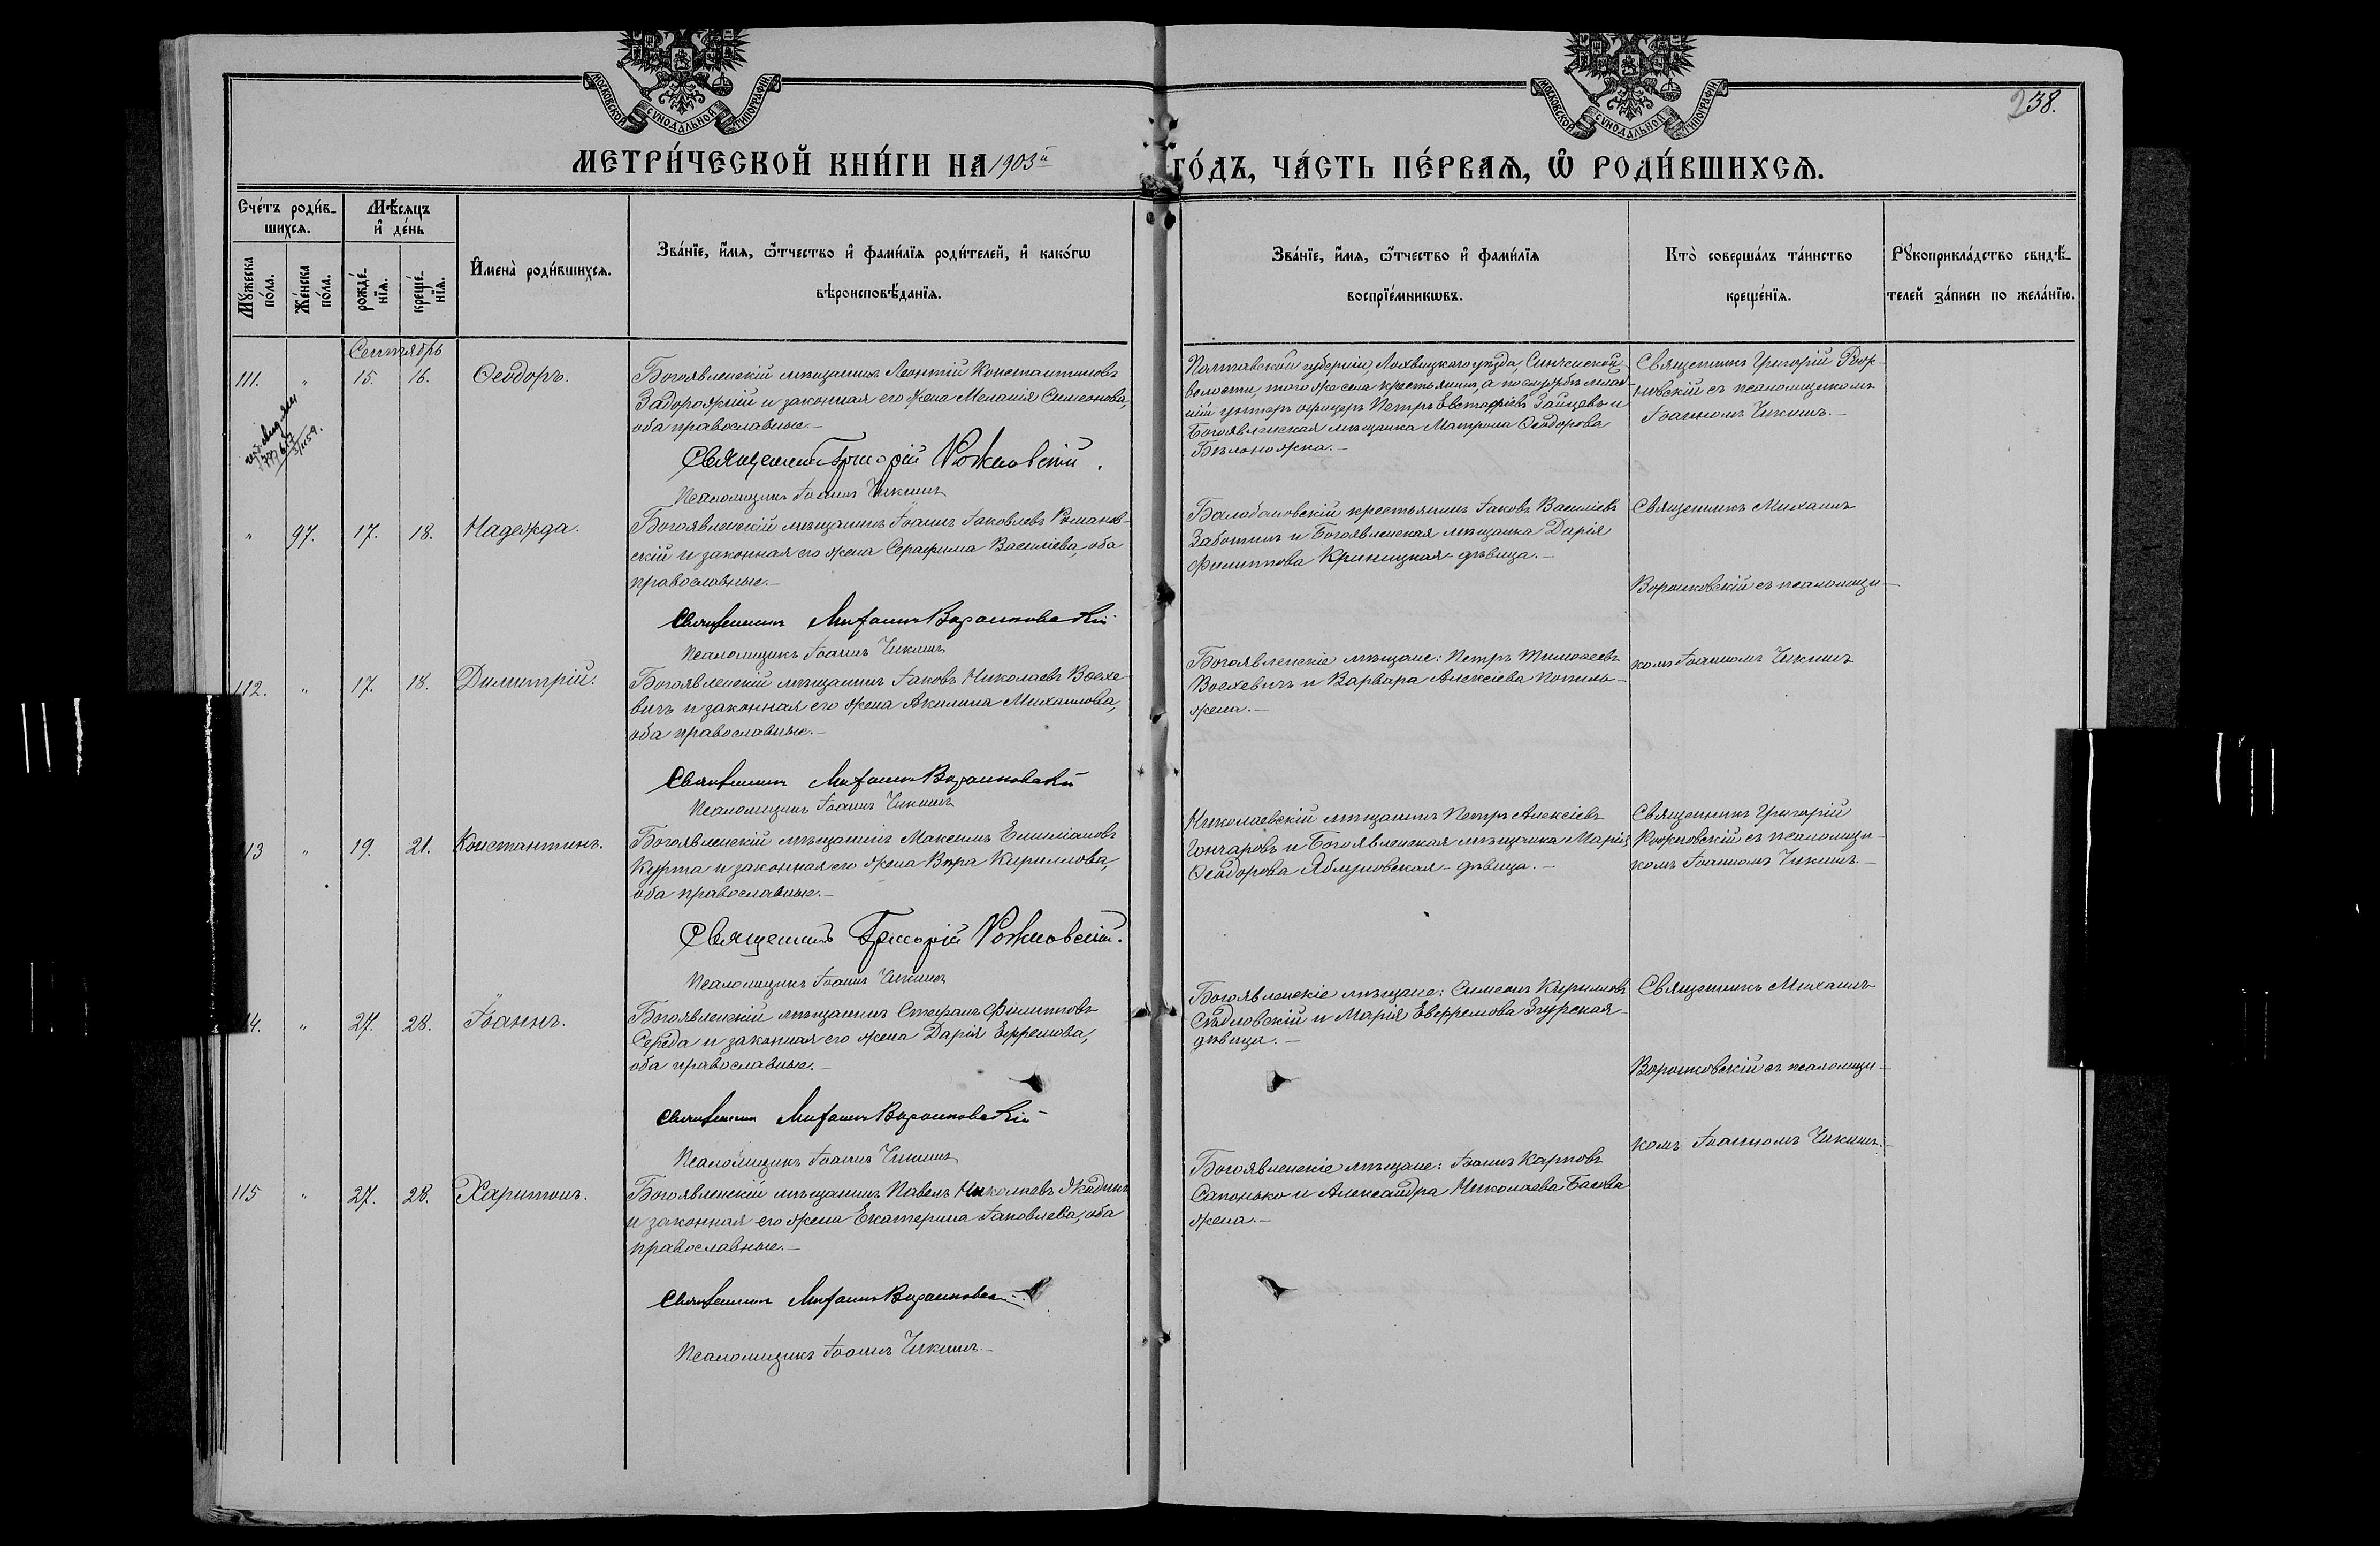 МОСКОВСКОЙ СѴНОДАЛЬНОЙ ТИПОГРАФІИ
МОСКОВСКОЙ СѴНОДАЛЬНОЙ ТИПОГРАФІИ
238.
МЕТРИ́ЧЕСКОЙ КНИ́ГИ НА 1903й ГО́ДЪ, ЧА́СТЬ ПЕ́РВАѦ, Ѡ҆ РОДИ́ВШИХСѦ.
Сче́тъ роди́в-
шихсѧ.
Мꙋ́жеска по́ла.
Же́нска по́ла.
Мѣ́сѧцъ
и҆ де́нь
рожде́-
нїѧ.
креще́-
нїѧ.
И҆мена̀ роди́вшихсѧ.
Зва́нїе, и҆́мѧ, ѻ҆́тчество и҆ фами́лїѧ роди́телей, и҆ како́гѡ
вѣроисповѣ́данїѧ.
Зва́нїе, и҆́мѧ, ѻ҆́тчество и҆ фами́лїѧ
воспрїе́мникѡвъ.
Кто̀ соверша́лъ та́инство
креще́нїѧ.
Рꙋкоприкла́дство свидѣ́-
телей за́писи по жела́нїю.
Сентябрь
111. " 15. 16. Ѳеодоръ.
Богоявленскій мѣщанинъ Леонтій Константиновъ
Задорожній и законная его жена Меланія Симеонова,
оба православные.-
Священникъ Григорій Рожновскій.
Псаломщикъ Іоаннъ Чикинъ
Полтавской губерніи, Лохвицкаго уѣзда, Синченской
волости, того же села крестьянинъ, а по службѣ млад-
шій унтеръ офицеръ Петръ Евстафіевъ Зайцевъ и
Богоявленская мѣщанка Матрона Ѳеодорова
Бѣлоножка.-
Священникъ Григорій Рож-
новскій съ псаломщикомъ
Іоанномъ Чикинъ.-
" 97. 17. 18. Надежда.
Богоявленскій мѣщанинъ Іоаннъ Іаковлевъ Романов-
скій и законная его жена Серафима Василіева, оба
православные.-
Священникъ Михаилъ Воронковскій
Псаломщикъ Іоаннъ Чикинъ
Балабановскій крестьянинъ Іаковъ Василіевъ
Заботинъ и Богоявленская мѣщанка Дарія
Филиппова Криницкая - дѣвица.-
Священникъ Михаилъ
Воронковскій съ псаломщи-
112. " 17. 18. Димитрій.
Богоявленскій мѣщанинъ Іаковъ Николаевъ Воехе-
вичъ и законная его жена Акилина Михаилова,
оба православные.-
Священникъ Михаилъ Воронковскій
Псаломщикъ Іоаннъ Чикинъ
Богоявленскіе мѣщане: Петръ Тимоѳеевъ
Воехевичъ и Варвара Алексіева Попиль-
жена.-
комъ Іоанномъ Чикинъ
13 " 19. 21. Константинъ.
Богоявленскій мѣщанинъ Максимъ Емиліановъ
Курта и законная его жена Вѣра Кириллова,
оба православные.-
Священникъ Григорій Рожновскій.
Псаломщикъ Іоаннъ Чикинъ
Николаевскій мѣщанинъ Петръ Алексіевъ
Гончаровъ и Богоявленская мѣщанка Марія
Ѳеодорова Яблуновская - дѣвица.-
Священникъ Григорій
Рожновскій съ псаломщи-
комъ Іоанномъ Чикинъ.-
14. " 27. 28. Іоаннъ.
Богоявленскій мѣщанинъ Стефанъ Филипповъ
Середа и законная его жена Дарія Ефремова,
оба православные.-
Священникъ Михаилъ Воронковскій
Псаломщикъ Іоаннъ Чикинъ
Богоявленскіе мѣщане: Симеонъ Кирилловъ
Сѣдловскій и Марія Евфремова Згурская
дѣвица.-
Священникъ Михаилъ
Воронковскій съ псаломщи-
комъ Іоанномъ Чикинъ.-
115 " 27. 28. Харитонъ.
Богоявленскій мѣщанинъ Павелъ Николаевъ
и законная его жена Екатерина Іаковлева, оба
православные.-
Священникъ Михаилъ Воронковскій
Псаломщикъ Іоаннъ Чикинъ.-
Богоявленскіе мѣщане: Іоаннъ Карповъ
Сапонько и Александра Николаева Басова
жена.-